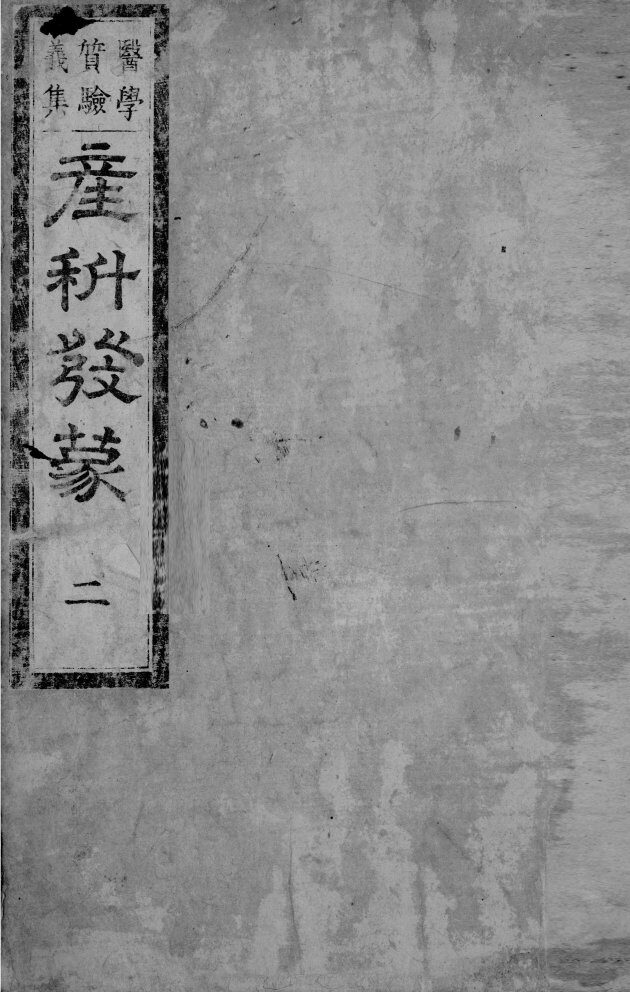 醫學
質驗
義集
產科發蒙
二